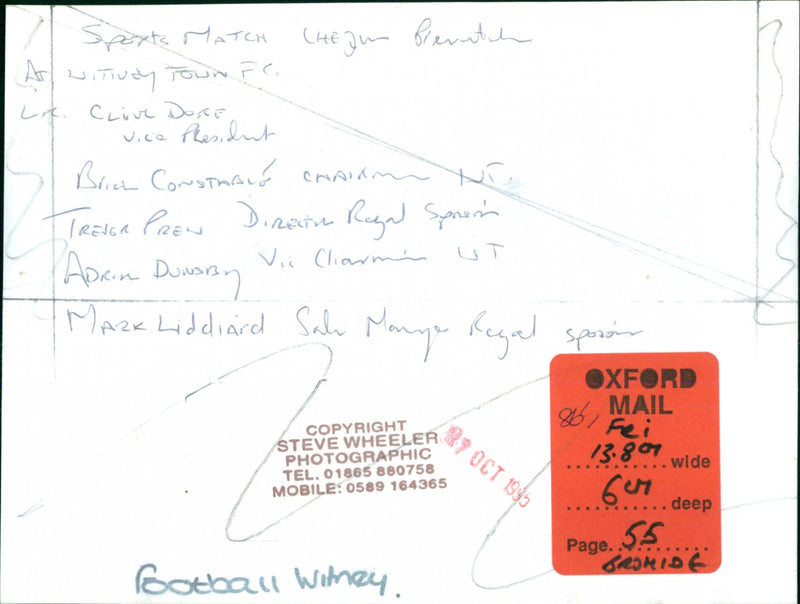 Sports MATCH CHEQUE Presentation
At WITNEY TOWN F.C.
L-R. CLIVE DORE
Vice President
BRIAN CONSTABLE CHAIRMAN WT.
TREVOR PREW DIRECTOR Regal Sponsors
ADRIAN DUNSBY Vice Chairman WT
MARK LIDDIARD Sales Manager Regal sponsors
COPYRIGHT
STEVE WHEELER
PHOTOGRAPHIC
TEL. 01865 880758
MOBILE: 0589 164365
29 OCT 1995
OXFORD
MAIL
Fri
13.8cm wide
6cm deep
Page 55
BROMIDE
Football Witney.